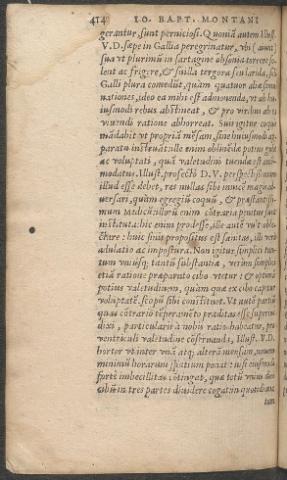 414 IO. BAPT. MONTANI
gerantur, sunt perniciosi. Quoniā autem Illust.
V. D. sæpe in Gallia peregrinatur, vbi
sua vt plurimū in sartagine absonia torrere so-
lent ac frigere, & suilla tergora seu larda, sic
Galli plura comedūt, quàm quatuor aliæ
nationes, ideo ea mihi est admonenda, vt ab hu-
iusmodi rebus abstineat, & pro viribus
viuendi ratione abhorreat. Sui igitur coquo
mādabit vt propriā mēsam, sine huiusmodi ap-
paratu instruat: ille enim potius gulæ
ac voluptati, quā valetudini tuendæ est
modatus. Illust. profectò D. V.
illud esse debet, res nullas sibi inuicē magis ad-
uersari, quàm egregiū coquū, & præstantissi-
mum medicū: illorū enim cōtraria penitus sunt
instituta: hic enim prodesse, ille autē vult oble-
ctare: huic finis propositus est sanitas, illi verò
adulatio ac impostura. Non igitur simplici tan-
tum vnius; tantū substantia, verùm simplici
etiā ratione præparato cibo vtetur: & optarā
potius valetudinem, quàm quæ ex cibo capitur
voluptatē, scopū sibi constituet. Vt autē partiū
quas cōtrario tēperamēto præditas esse superius
dixi, particularis à nobis ratio habeatur, pro
ventriculi valetudine cōseruandi, Illust. V. D.
hortor vt inter vnā atq; alterā mensam,
minimū horarum spatium ponat: nisi enim
fortè imbecillitas cōtingat, quæ totū vnius diei
cibū in tres partes diuidere cogat: